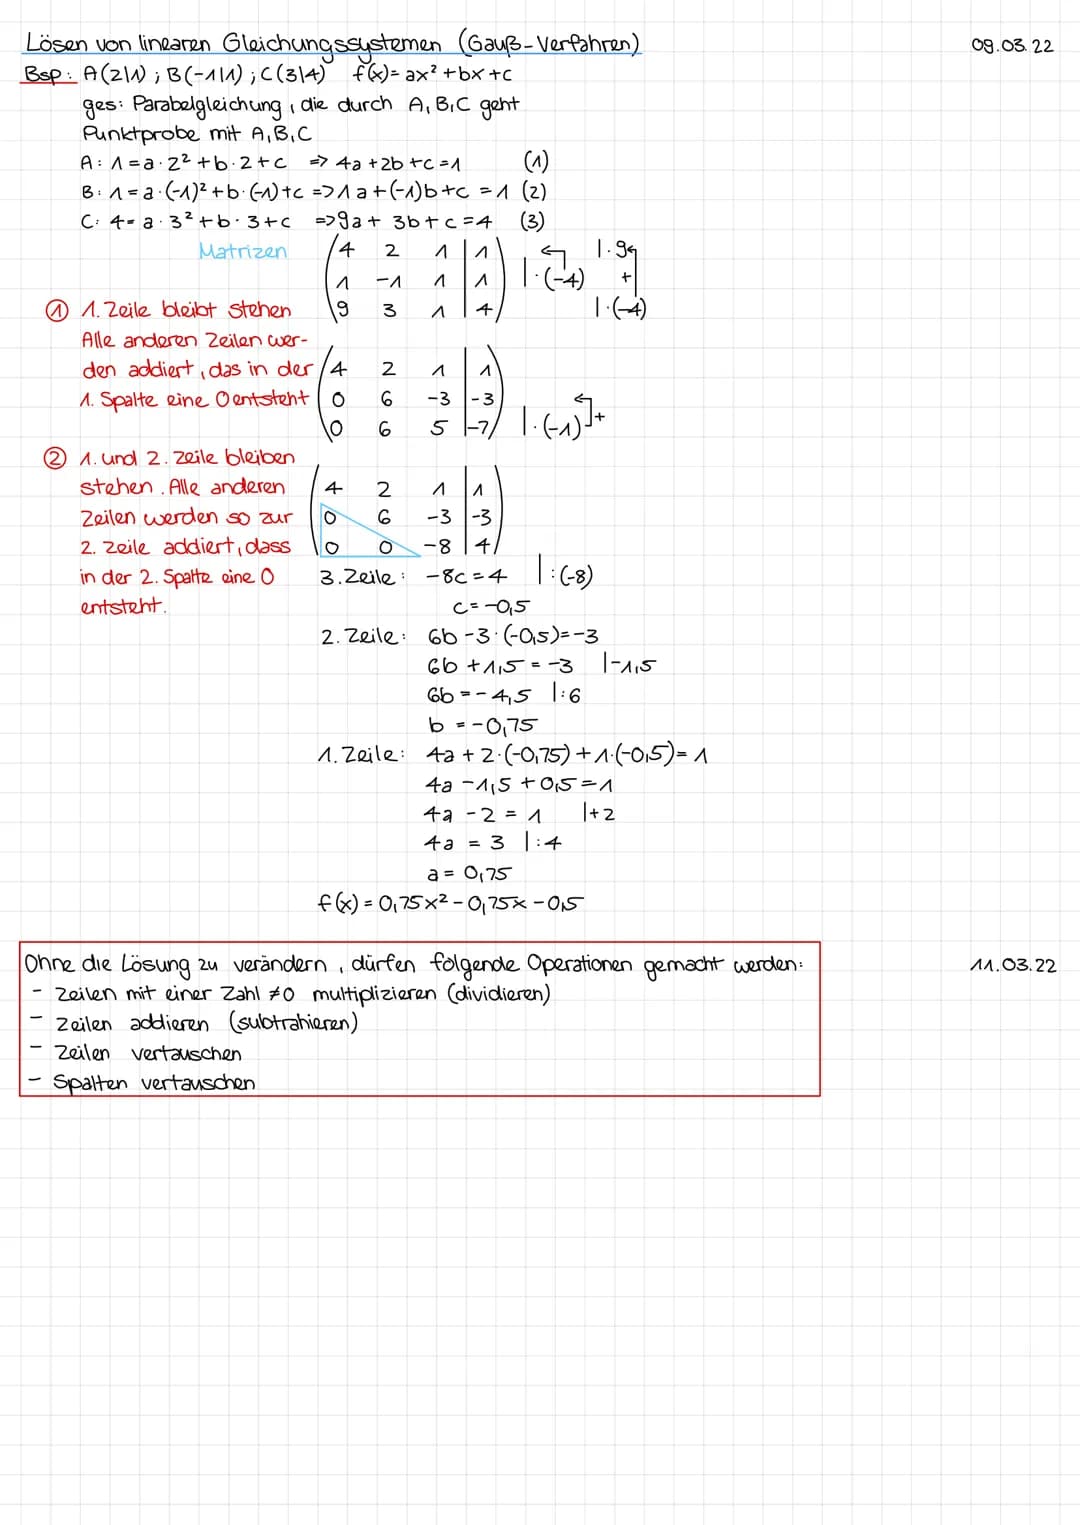 Lösen von linearen Gleichungssystemen (Gauß-Verfahren) 09.03.22
Bsp: A(2|1); B(-1|1); C(3|4) f(x)=ax²+bx+c
ges: Parabelgleichung, die durch A,B,C geht
Punktprobe mit A,B,C
A: 1=a·2²+b·2+c => 4a+2b+c=1 (1)
B: 1=a·(-1)²+b·(-1)+c =>1a+(-1)b+c =1 (2)
C: 4=a·3²+b·3+c =>9a+3b+c=4 (3)
Matrizen (4 2 1 | 1) |·9
1 -1 1 | 1 |·(-4) +
① 1. Zeile bleibt stehen 9 3 1 | 4 |·(-4)
Alle anderen Zeilen wer-
den addiert, das in der 4 2 1 | 1
1. Spalte eine 0 entsteht 0 6 -3 | -3
0 6 5 | -7 |·(-1) +
② 1. und 2. Zeile bleiben
stehen. Alle anderen 4 2 1 | 1
Zeilen werden so zur 0 6 -3 | -3
2. Zeile addiert, dass 0 0 -8 | 4
in der 2. Spalte eine 0 3. Zeile: -8c=4 |:(-8)
entsteht. c=-0,5
2. Zeile: 6b-3·(-0,5)=-3
6b+1,5=-3 |-1,5
6b=-4,5 |:6
b=-0,75
1. Zeile: 4a+2·(-0,75)+1·(-0,5)=1
4a-1,5+0,5=1
4a-2=1 |+2
4a=3 |:4
a=0,75
f(x)=0,75x²-0,75x-0,5
Ohne die Lösung zu verändern, dürfen folgende Operationen gemacht werden: 11.03.22
- Zeilen mit einer Zahl ≠0 multiplizieren (dividieren)
- Zeilen addieren (subtrahieren)
- Zeilen vertauschen
- Spalten vertauschen